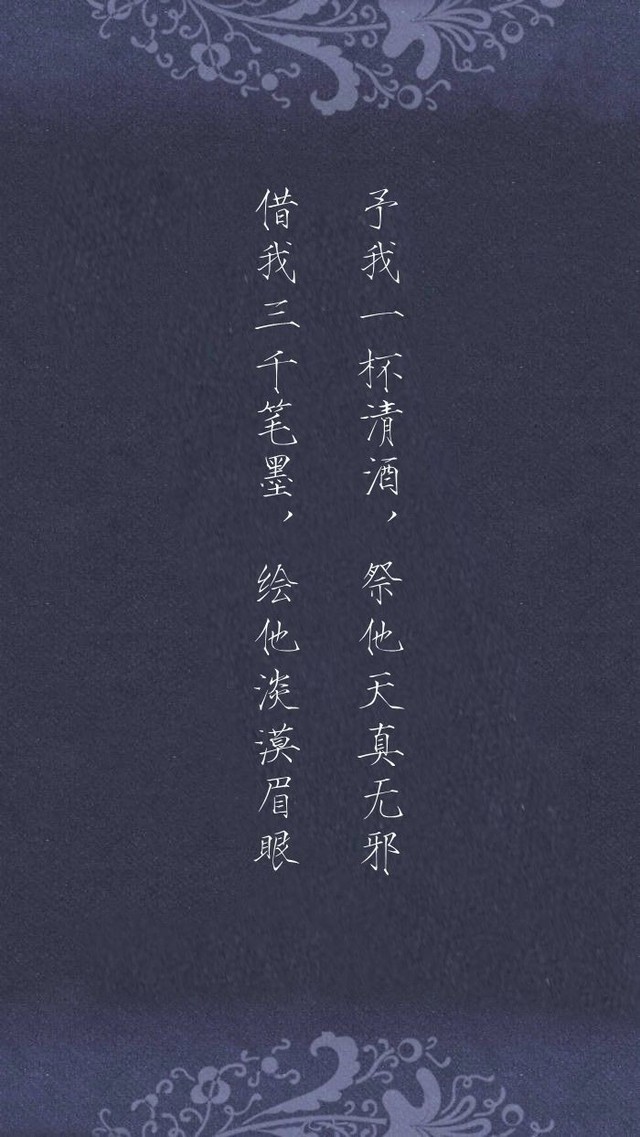 予我一杯清酒，祭他天真无邪
借我三千笔墨，绘他淡漠眉眼